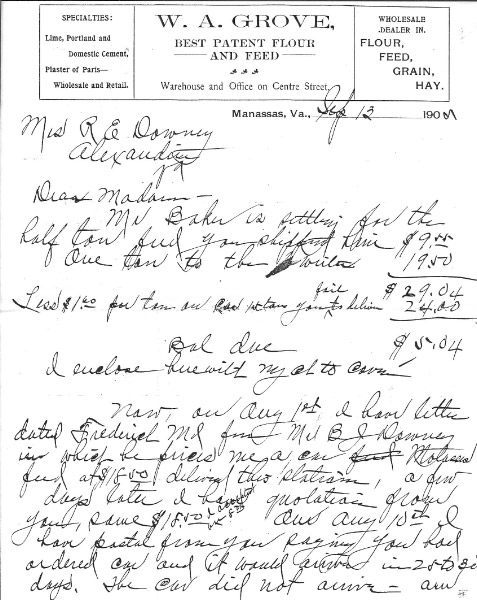 SPECIALTIES:
Lime, Portland and
Domestic Cement,
Plaster of Paris—
Wholesale and Retail.
W. A. GROVE,
BEST PATENT FLOUR
—AND FEED—
Warehouse and Office on Centre Street.
WHOLESALE
DEALER IN.
FLOUR,
FEED,
GRAIN,
HAY.
Manassas, Va., Sep 12 190
Miss R E Downey
Alexandria
Va
Dear Madam —
Mr Baker is settling for the
half ton feed you shipped him $9.
One ton to the 19.50
$29.04
Less $1.00 per ton on car you fail to deliver 24.00
Bal due $5.04
I enclose herewith my ck to cover
Now, on Aug 1st I have letter
dated Frederick Md from Mr B J Downey
in which he prices me a car Molasses
feed at $18.50 delivered this station, a few
days later I have quotation from
you, same $18.50 Aug 10th I
have postal from you saying you had
ordered car and it would arrive in 25 to 30
days. The car did not arrive — and